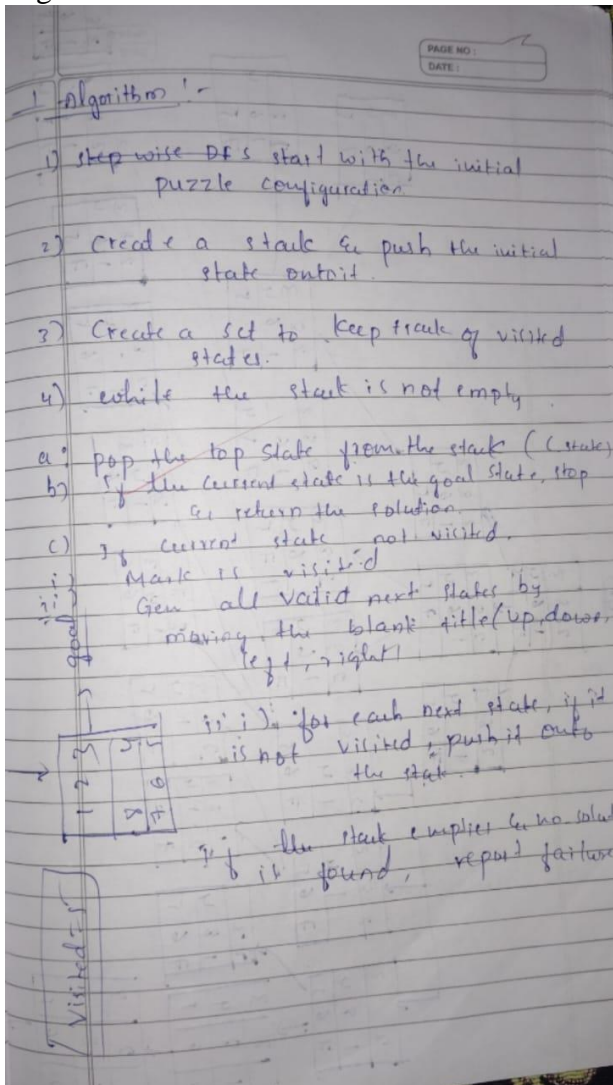 PAGE NO :
DATE :
1 Algorithm :-
1) step wise DFS start with the initial
puzzle configuration
2) Create a stack & push the initial
state onto it.
3) Create a set to keep track of visited
states.
4) while the stack is not empty
a: pop the top state from the stack (
b) If the current state is the goal state, stop
& return the solution.
c) If current state not visited.
i) Mark is visited
ii) Gen all valid next states by
moving the blank title (up, down,
left, right)
iii) for each next state, if it
is not visited, push it onto
the stak.
If the stack empties & no solu
is found, report failure
goal
1 2 3
8
7 6 5
Visited = 5